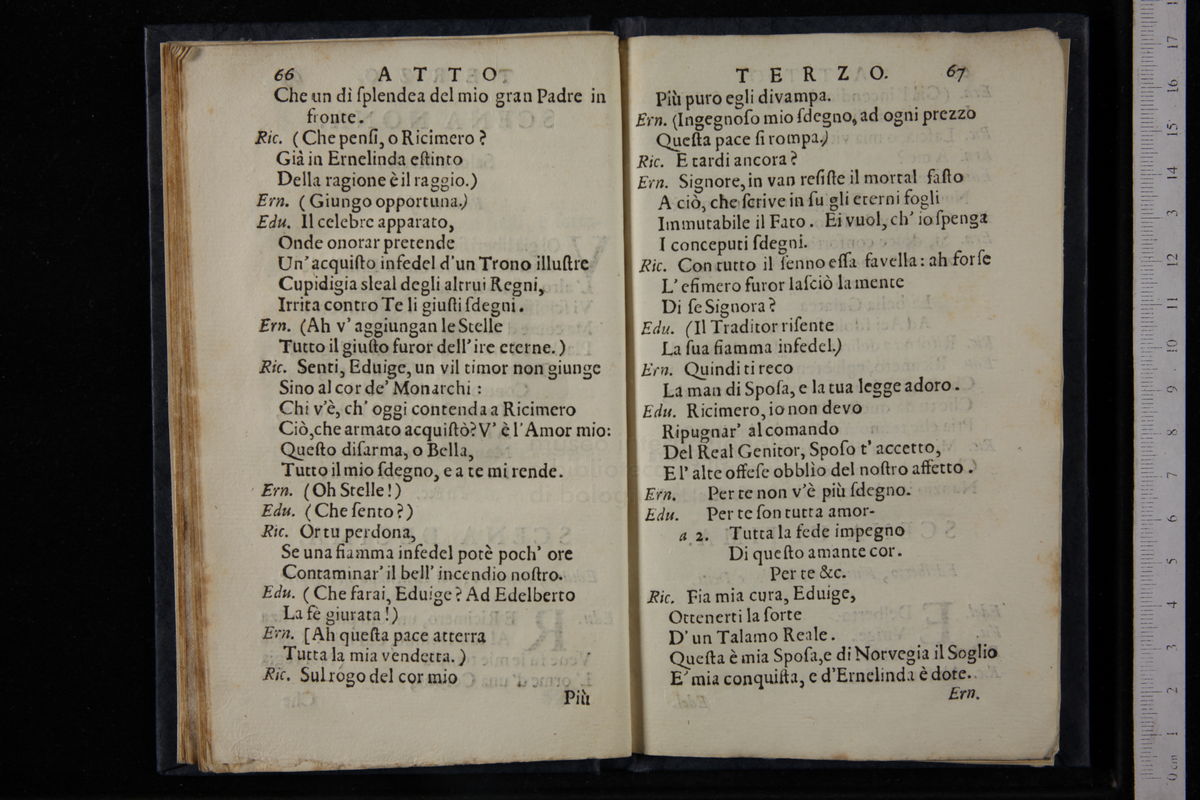 66 ATTO
Che un di ſplendea del mio gran Padre in
fronte.
Ric. (Che penſi, o Ricimero?
Già in Ernelinda eſtinto
Della ragione è il raggio.)
Ern. (Giungo opportuna.)
Edu. Il celebre apparato,
Onde onorar pretende
Un' acquiſto infedel d'un Trono illuſtre
Cupidigia sleal degli altrui Regni,
Irrita contro Te li giuſti ſdegni.
Ern. (Ah v' aggiungan le Stelle
Tutto il giuſto furor dell' ire eterne.)
Ric. Senti, Eduige, un vil timor non giunge
Sino al cor de' Monarchi:
Chi v'è, ch' oggi contenda a Ricimero
Ciò, che armato acquiſtò? V' è l'Amor mio:
Queſto diſarma, o Bella,
Tutto il mio ſdegno, e a te mi rende.
Ern. (Oh Stelle!)
Edu. (Che ſento?)
Ric. Or tu perdona,
Se una fiamma infedel potè poch' ore
Contaminar' il bell' incendio noſtro.
Edu. (Che farai, Eduige? Ad Edelberto
La fè giurata!)
Ern. [Ah queſta pace atterra
Tutta la mia vendetta.)
Ric. Sul rógo del cor mio
Più
TERZO. 67
Più puro egli divampa.
Ern. (Ingegnoſo mio ſdegno, ad ogni prezzo
Queſta pace ſi rompa.)
Ric. E tardi ancora?
Ern. Signore, in van reſiſte il mortal faſto
A ciò, che ſcrive in ſu gli eterni fogli
Immutabile il Fato. Ei vuol, ch' io ſpenga
I conceputi ſdegni.
Ric. Con tutto il ſenno eſſa favella: ah forſe
L' efimero furor laſciò la mente
Di ſe Signora?
Edu. (Il Traditor riſente
La ſua fiamma infedel.)
Ern. Quindi ti reco
La man di Spoſa, e la tua legge adoro.
Edu. Ricimero, io non devo
Ripugnar' al comando
Del Real Genitor, Spoſo t' accetto,
E l' alte offeſe obblìo del noſtro affetto.
Ern. Per te non v'è più ſdegno.
Edu. Per te ſon tutta amor-
a 2. Tutta la fede impegno
Di queſto amante cor.
Per te &c.
Ric. Fia mia cura, Eduige,
Ottenerti la ſorte
D' un Talamo Reale.
Queſta è mia Spoſa, e di Norvegia il Soglio
E' mia conquiſta, e d'Ernelinda è dote.
Ern.